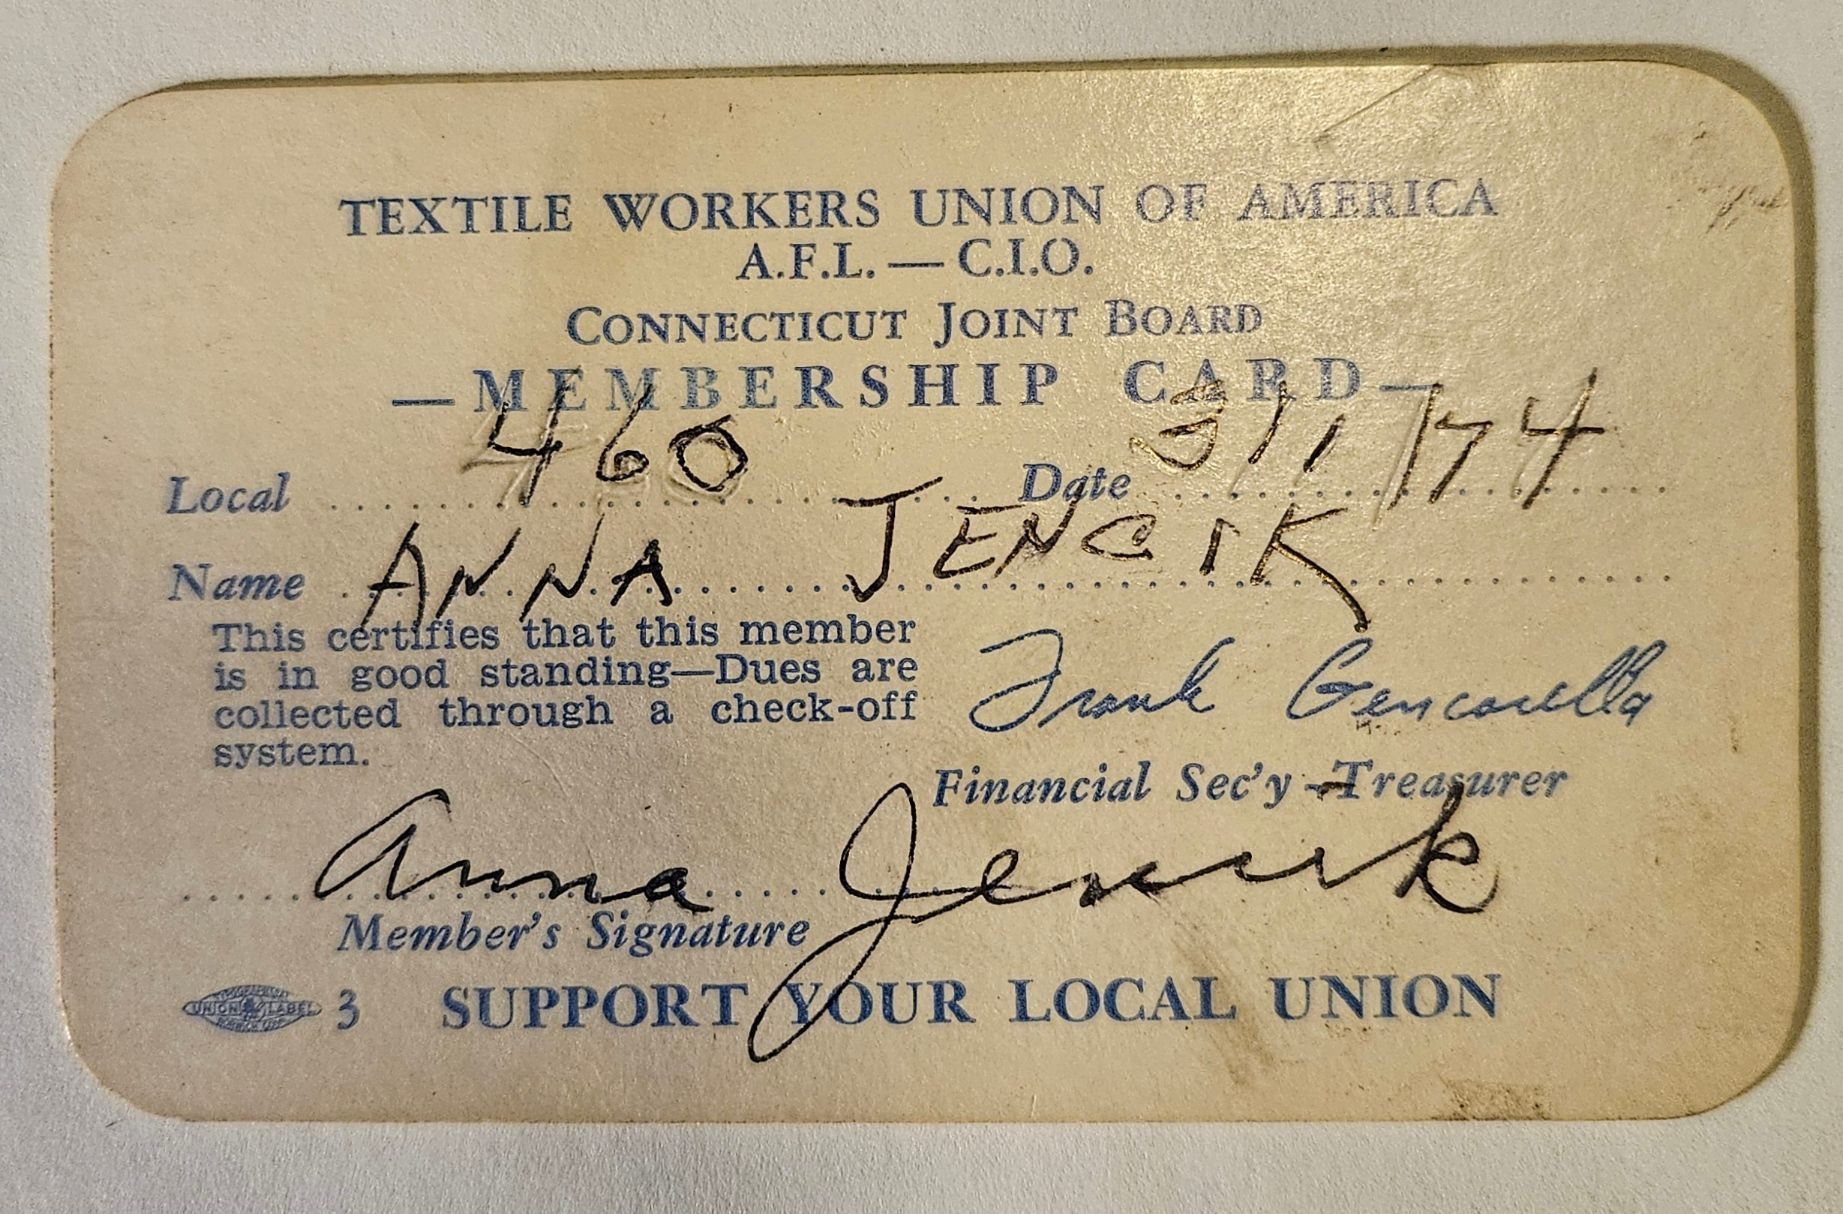 TEXTILE WORKERS UNION OF AMERICA
A.F.L. — C.I.O.
CONNECTICUT JOINT BOARD
— MEMBERSHIP CARD —
Local 460 Date 3/1/74
Name ANNA JENCIK
This certifies that this member
is in good standing—Dues are
collected through a check-off
system.
Frank Gencarella
Financial Sec'y - Treasurer
Anna Jencik
Member's Signature
UNION LABEL 3 SUPPORT YOUR LOCAL UNION